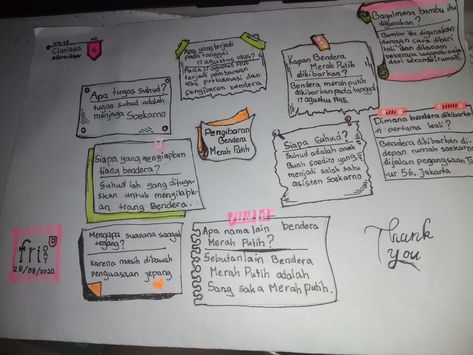 Clarissa
clarissa
6
Apa tugas Suhud?
tugas suhud adalah
menjaga Soekarno
Apa yang terjadi
pada tanggal
17 Agustus 1945?
Pada 17 agustus 1945
terjadi pembacaan
teks proklamasi dan
pengibaran bendera
Kapan Bendera
Merah Putih
dikibarkan?
Bendera merah putih
dikibarkan pada tanggal
17 agustus 1945.
Bagaimana bambu itu
digunakan?
Bambu itu digunakan
dengan cara diberi
tali dan ditanam
beberapa langkah
dari serambi rumah.
Pengibaran
Bendera
Merah Putih
Siapa Suhud?
Suhud adalah anak
Buah Soediro yang
menjadi salah satu
asisten Soekarno
Dimana bendera dikibarkan
pertama kali?
Bendera dikibarkan di
depan rumah soekarno
dijalan pegangsaan
timur 56, Jakarta
Siapa yang menyiapkan
tiang bendera?
Suhud lah yang dituga-
skan untuk menyiapk-
an tiang Bendera.
Mengapa suasana sangat
tegang?
karena masih dibawah
penguasaan jepang
Apa nama lain bendera
Merah Putih?
Sebutan lain Bendera
Merah Putih adalah
Sang saka Merah putih.
fri
DAY
28/08/2020
Thank
you